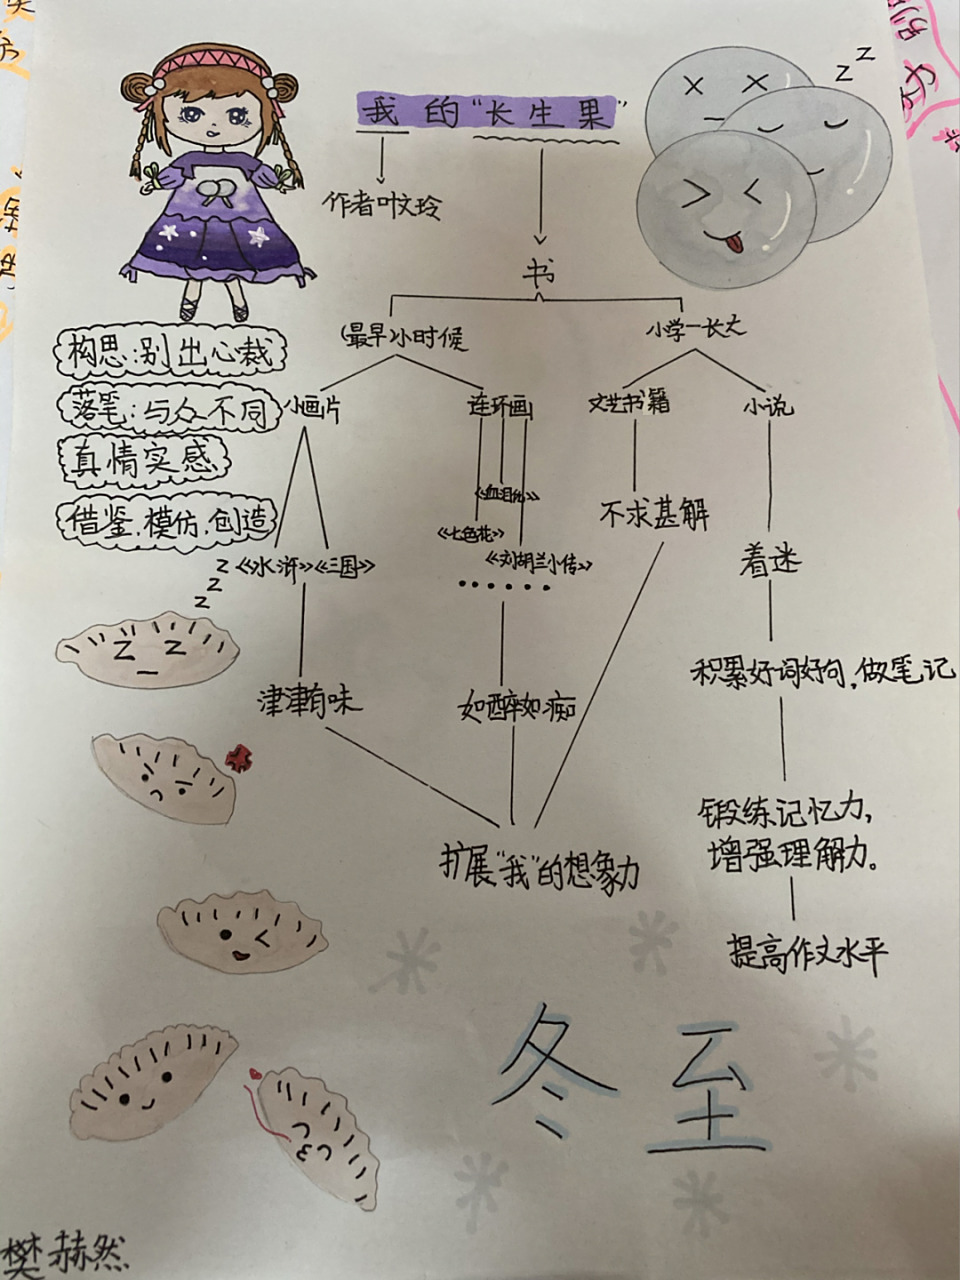 我的“长生果”
作者叶文玲
书
(最早)小时候
小学一长大
构思:别出心裁
落笔:与众不同
真情实感
借鉴.模仿.创造
小画片
连环画
文艺书籍
小说
《血泪仇》
《七色花》
《刘胡兰小传》
......
《水浒》《三国》
不求甚解
着迷
津津有味
如醉如痴
积累好词好句,做笔记
扩展“我”的想象力
锻练记忆力,
增强理解力。
提高作文水平
冬至
樊赫然
z z
z
z
z
z z